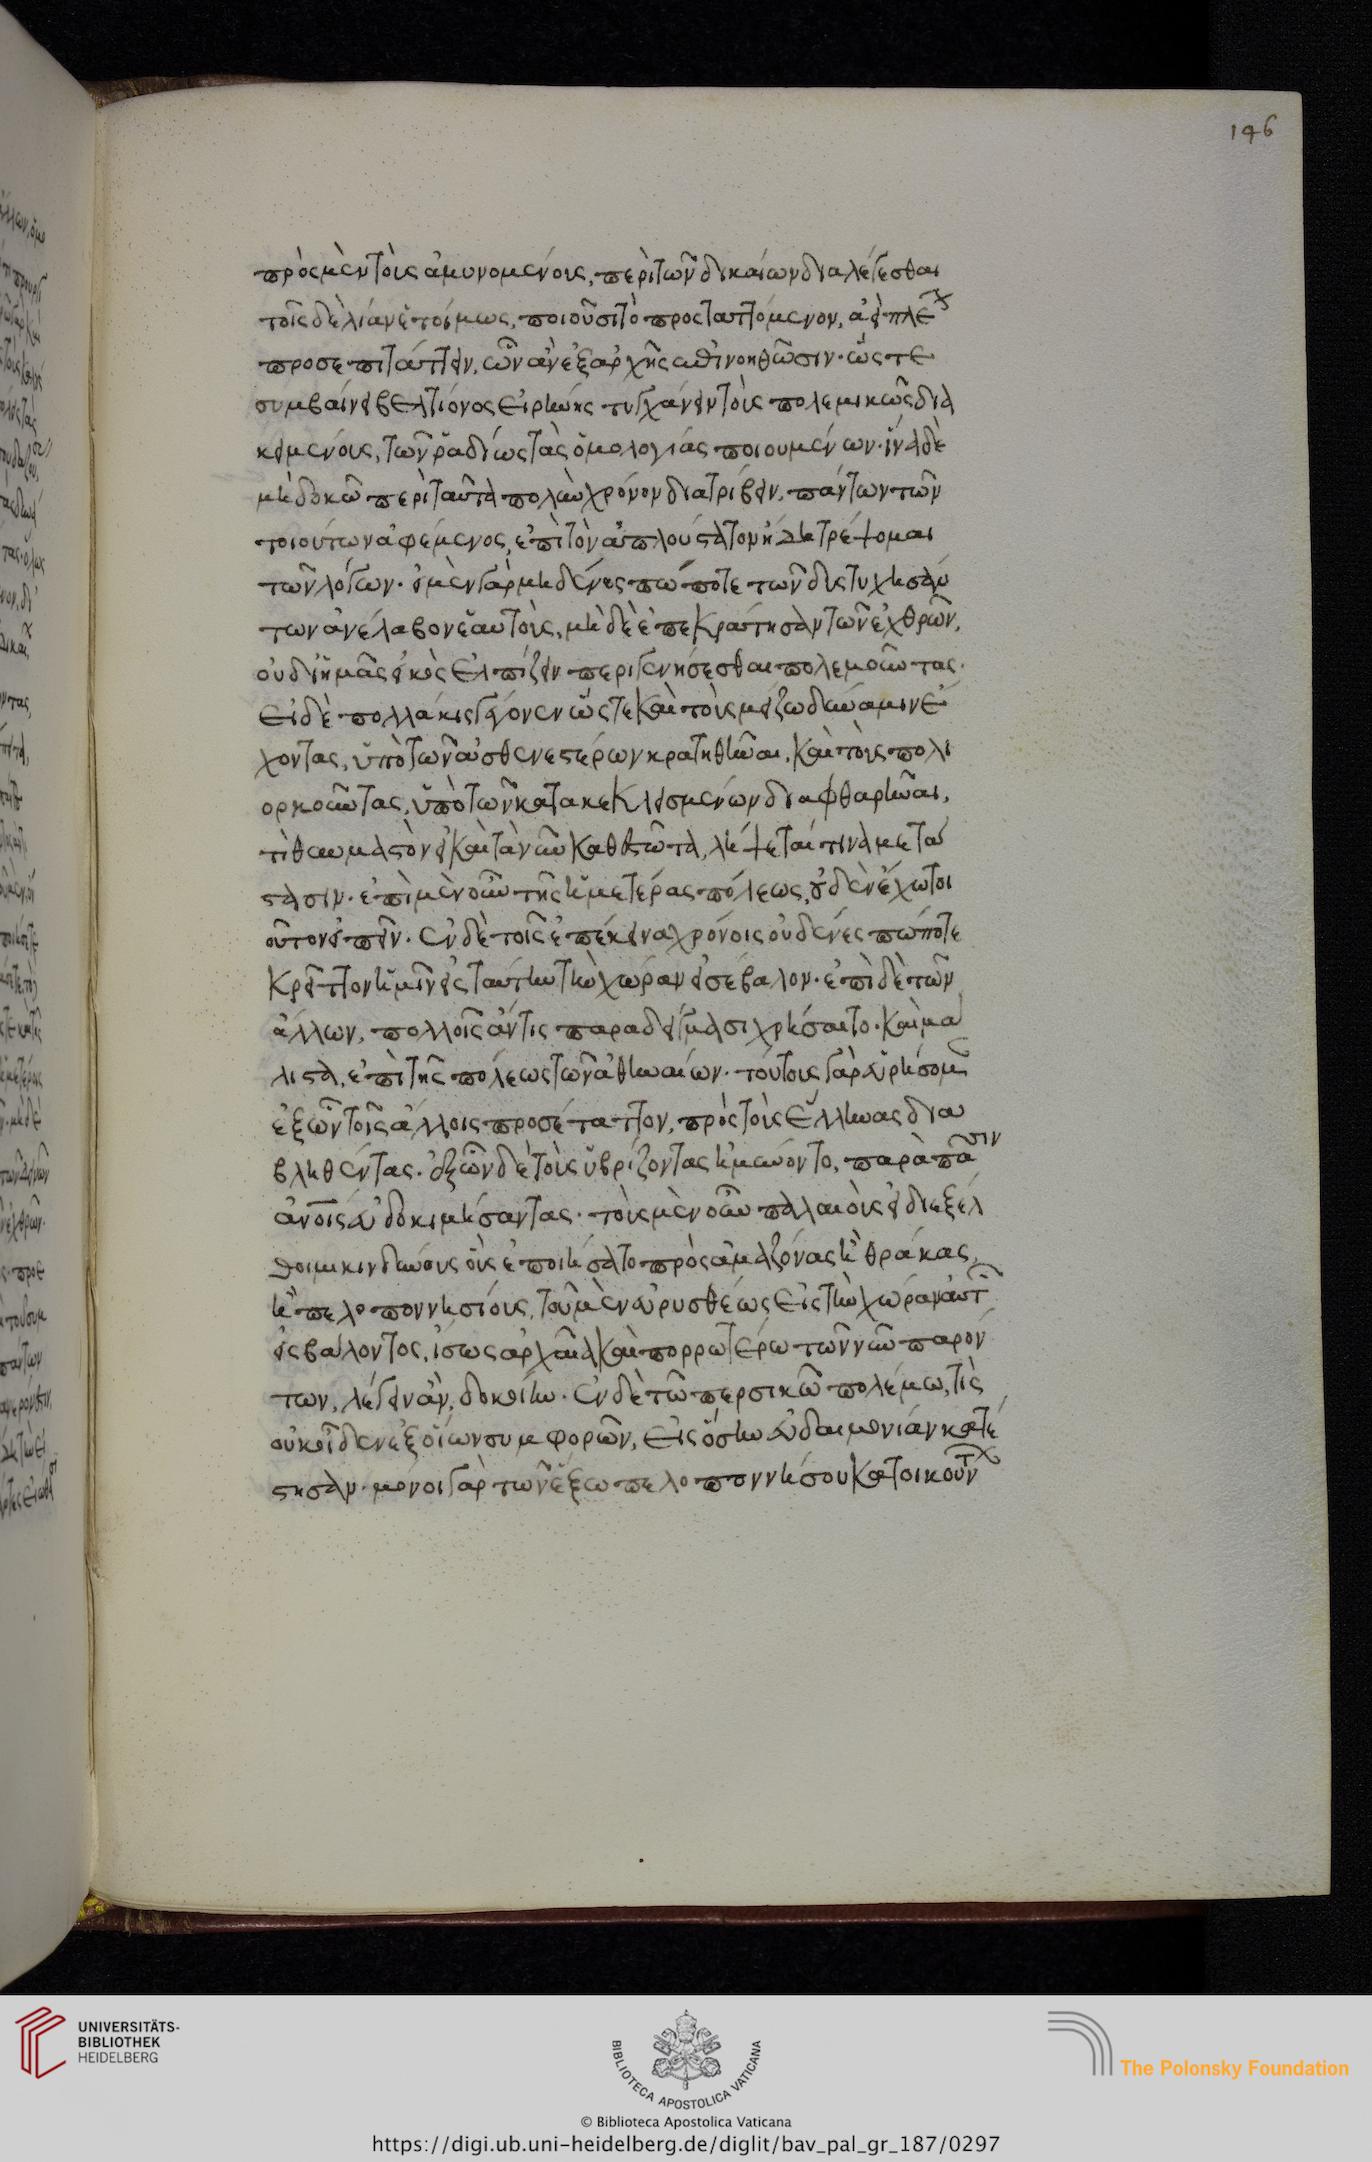 146
πρὸς μὲν τοὺς ἀμυνομένους, περὶ τῶν δικαίων διαλέγεσθαι
τοῖς δὲ λίαν ἑτοίμως, ποιοῦσι τὸ προσταττόμενον, ἀεὶ πλεί
προσεπιτάττειν, ὧν ἂν ἐξαρχῆς ὦσι νοηθῶσιν. ὥστε
συμβαίνει βελτίονος εἰρήνης τυγχάνειν τοὺς πολεμικῶς δια
κειμένους, τῶν ῥᾳδίως τὰς ὁμολογίας ποιουμένων. ἵνα δὲ
μὴ δοκῶ περὶ ταῦτα πολὺν χρόνον διατρίβειν, πάντων τῶν
τοιούτων ἀφέμενος, ἐπὶ τὸν ἁπλούστατον ἤδη τρέψομαι
τῶν λόγων. εἰ μὲν γὰρ μηδένες πώποτε τῶν δυστυχησάν
των ἀνέλαβον ἑαυτοὺς, μηδὲ ἐπεκράτησαν τῶν ἐχθρῶν,
οὐδ' ἡμᾶς εἰκὸς ἐλπίζειν περιγενήσεσθαι πολεμοῦντας.
εἰ δὲ πολλάκις γέγονεν ὥστε καὶ τοὺς μείζω δύναμιν ἔ
χοντας, ὑπὸ τῶν ἀσθενεστέρων κρατηθῆναι, καὶ τοὺς πολι
ορκοῦντας, ὑπὸ τῶν κατακεκλεισμένων διαφθαρῆναι,
τί θαυμαστὸν εἰ καὶ τὰ νῦν καθεστῶτα, λήψεταί τινα μετά
στασιν. ἐπὶ μὲν οὖν τῆς ἡμετέρας πόλεως, οὐδὲν ἔχω τοι
οῦτον εἰπεῖν. ἐν δὲ τοῖς ἐπέκεινα χρόνοις οὐδένες πώποτε
κρείττον ἡμῖν εἰς ταύτην τὴν χώραν εἰσέβαλον. ἐπὶ δὲ τῶν
ἄλλων, πολλοῖς ἄν τις παραδείγμασι χρήσαιτο. καὶ μά
λιστα, ἐπὶ τῆς πόλεως τῶν ἀθηναίων. τούτους γὰρ εὑρήσομεν
ἐξ ὧν τοῖς ἄλλοις προσέταττον, πρὸς τοὺς ἕλληνας δια
βληθέντας. ἐξ ὧν δὲ τοὺς ὑβρίζοντας ἠμύνοντο, παρὰ πᾶσιν
ἀνοις εὐδοκιμήσαντας. τοὺς μὲν οὖν παλαιοὺς εἰ διεξέλ
θοιμι κινδύνους οὓς ἐποιήσαντο πρὸς ἀμαζόνας ἢ θρᾶκας,
ἢ πελοποννησίους, τοὺς μὲν εὐρυσθέως εἰς τὴν χώραν αὐτ
εἰσβαλόντος, ἴσως ἀρχαῖα καὶ πορρωτέρω τῶν νῦν παρόν
των, λέγειν ἂν, δοκοίην. ἐν δὲ τῷ περσικῷ πολέμῳ, τίς
οὐκ οἶδεν ἐξ οἵων συμφορῶν, εἰς ὅσην εὐδαιμονίαν κατέ
στησαν. μόνοι γὰρ τῶν ἔξω πελοποννήσου κατοικούντων
UNIVERSITÄTS-
BIBLIOTHEK
HEIDELBERG
BIBLIOTECA APOSTOLICA VATICANA
The Polonsky Foundation
© Biblioteca Apostolica Vaticana
https://digi.ub.uni-heidelberg.de/diglit/bav_pal_gr_187/0297